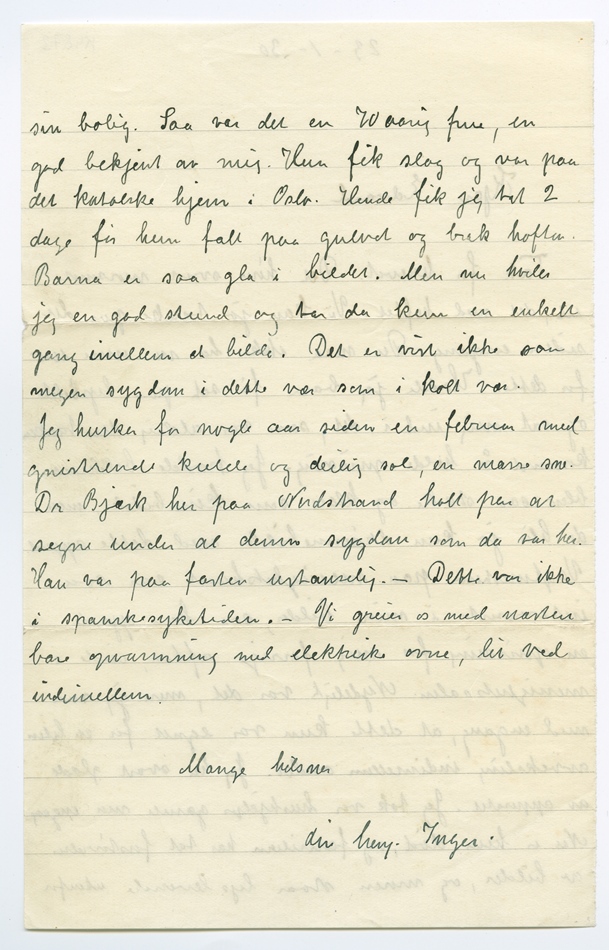 sin bolig. Saa var det en 70 aarig frue, en
god bekjent av mig. Hun fik slag og var paa
det katolske hjem i Oslo. Hende fik jeg tat 2
dage før hun falt paa gulvet og bræk hoften.
Barna er saa gla i bildet. Men nu hviler
jeg en god stund og tar da kun en enkelt
gang imellem et bilde. Det er vist ikke saa
megen sygdom i dette vær som i kolt vær.
Jeg husker for nogle aar siden en februar med
gnistrende kulde og deilig sol, en masse sne.
Dr Bjørk her paa Nordstrand holt paa at
segne under al denne sygdom som da var her.
Han var paa farten ustanselig. — Dette var ikke
i spanskesyketiden. — Vi greier os med næsten
bare opvarmning med elektriske ovne, lit ved
indimellem.
Mange hilsner
din heng. Inger.